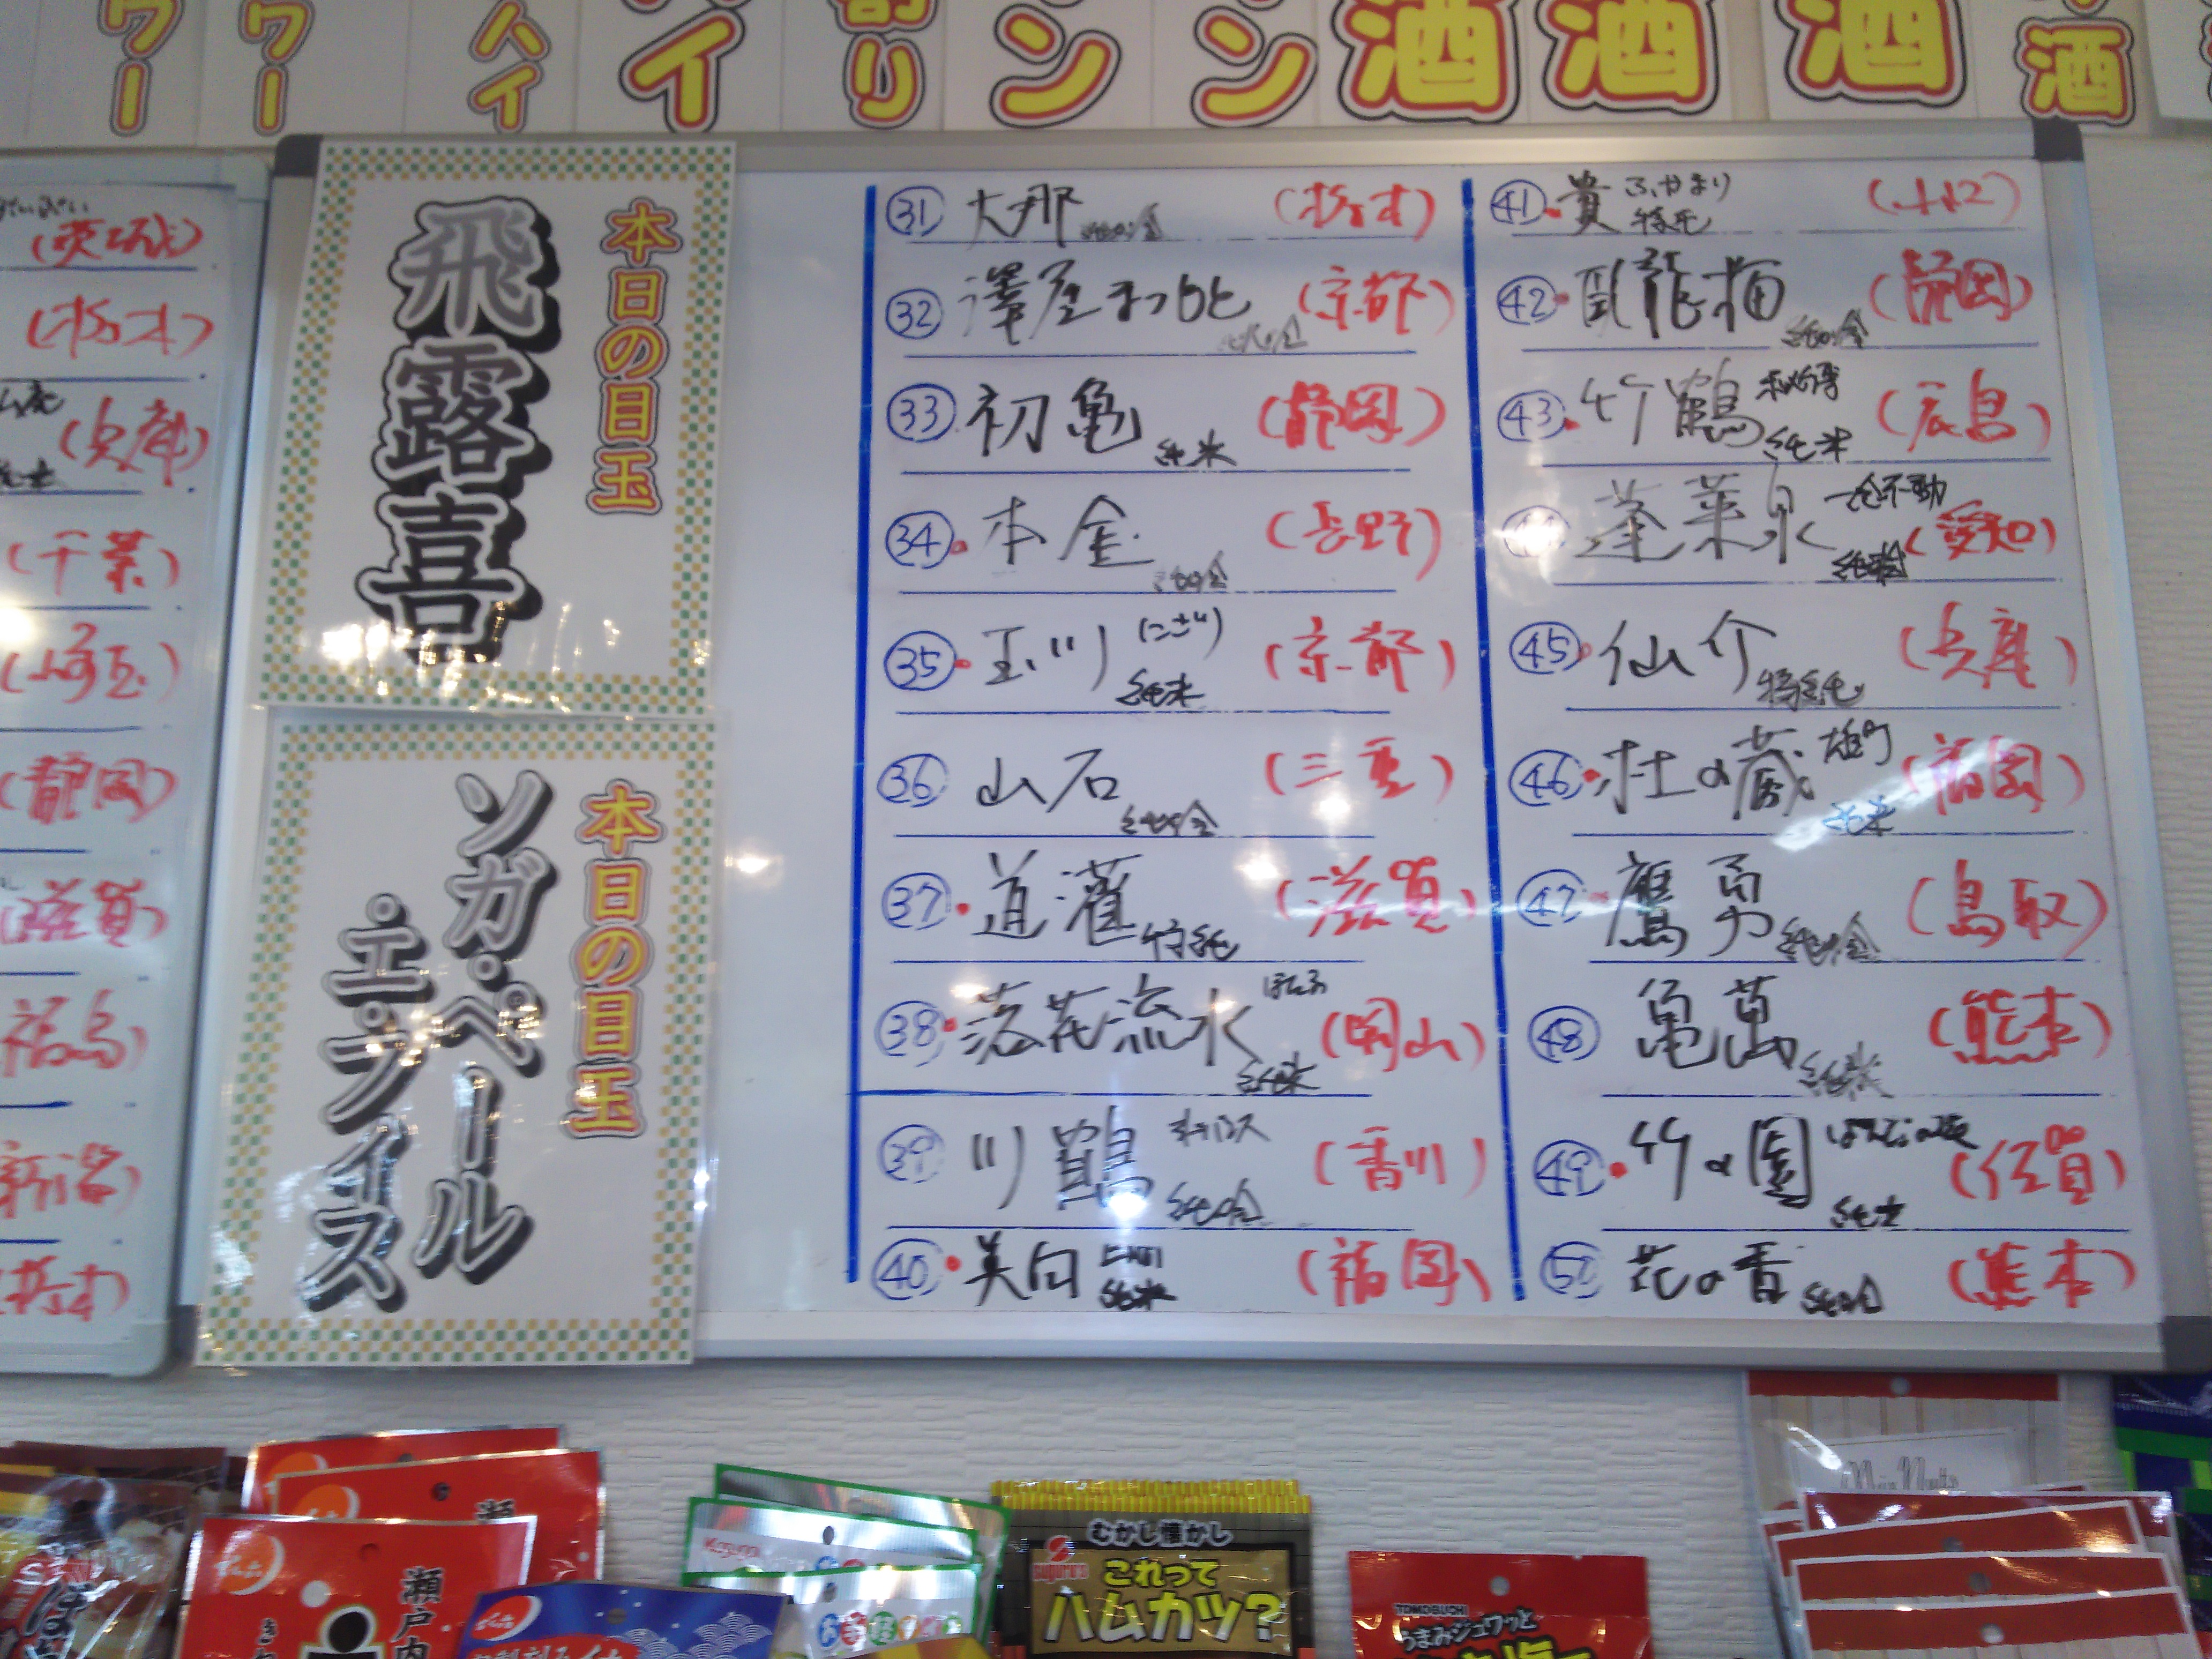 ワー
ワー
ハイ
イ
割り
ン
ン
酒
酒
酒
酒
(茨城)
(栃木)
(兵庫)
(千葉)
(埼玉)
(静岡)
(滋賀)
福島
新潟)
栃木)
本日の目玉
飛露喜
本日の目玉
ソガ・ペール
・エ・フィス
31 大那 純吟 (栃木)
32 澤屋まつもと 純吟 (京都)
33 初亀 純米 (静岡)
34 本金 純吟 (長野)
35 玉川 (にごり) 純米 (京都)
36 山石 純吟 (三重)
37 道灌 特純 (滋賀)
38 落花流水 純米 (岡山)
39 川鶴 純吟 (香川)
40 美田 純米 (福岡)
41 貴 特純
42 臥龍梅 純吟 (静岡)
43 竹鶴 秘傳 純米 (広島)
44 蓬莱泉 一念不動 (愛知)
45 仙介 特純 (兵庫)
46 杜の蔵 雄町 純米 (福岡)
47 鷹勇 純吟 (鳥取)
48 亀萬 純米 (熊本)
49 竹の園 純米 (佐賀)
50 花の香 純吟 (熊本)
瀬戸内
むかし懐かし
これって
ハムカツ?
TOMOBUCHI
うまみジュワッと